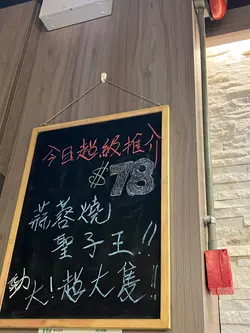 今日超級推介
$78
蒜蓉燒
聖子王!!
勁大!超大隻!!